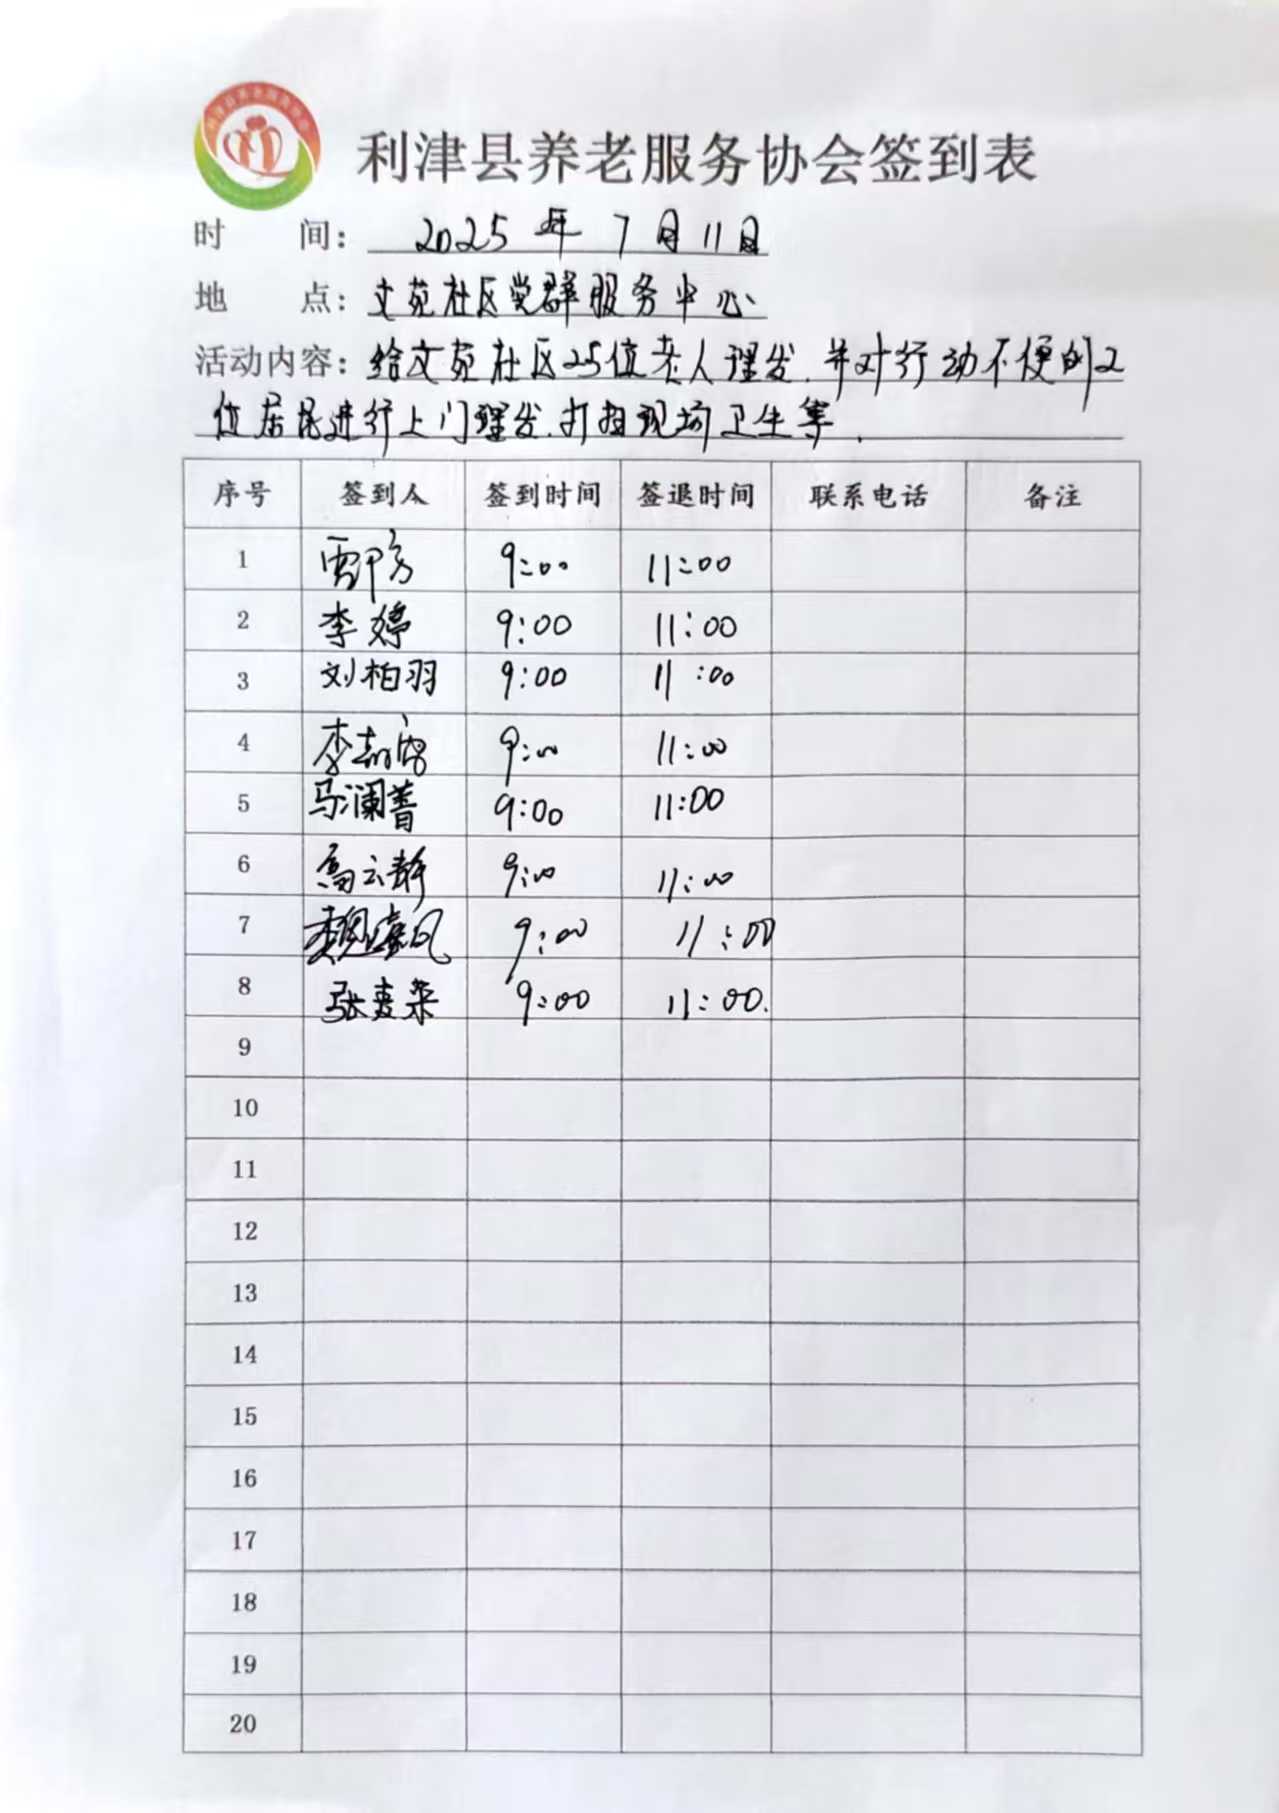 利津县养老服务协会签到表
时 间： 2025 年 7 月 11 日
地 点： 文苑社区党群服务中心
活动内容：给文苑社区25位老人理发，并对行动不便的2
位居民进行上门理发，打扫现场卫生等．
序号 签到人 签到时间 签退时间 联系电话 备注
1 9:00 11:00
2 李婷 9:00 11:00
3 刘柏羽 9:00 11:00
4 李 9:00 11:00
5 马澜菁 9:00 11:00
6 高云静 9:00 11:00
7 9:00 11:00
8 张 9:00 11:00.
9
10
11
12
13
14
15
16
17
18
19
20